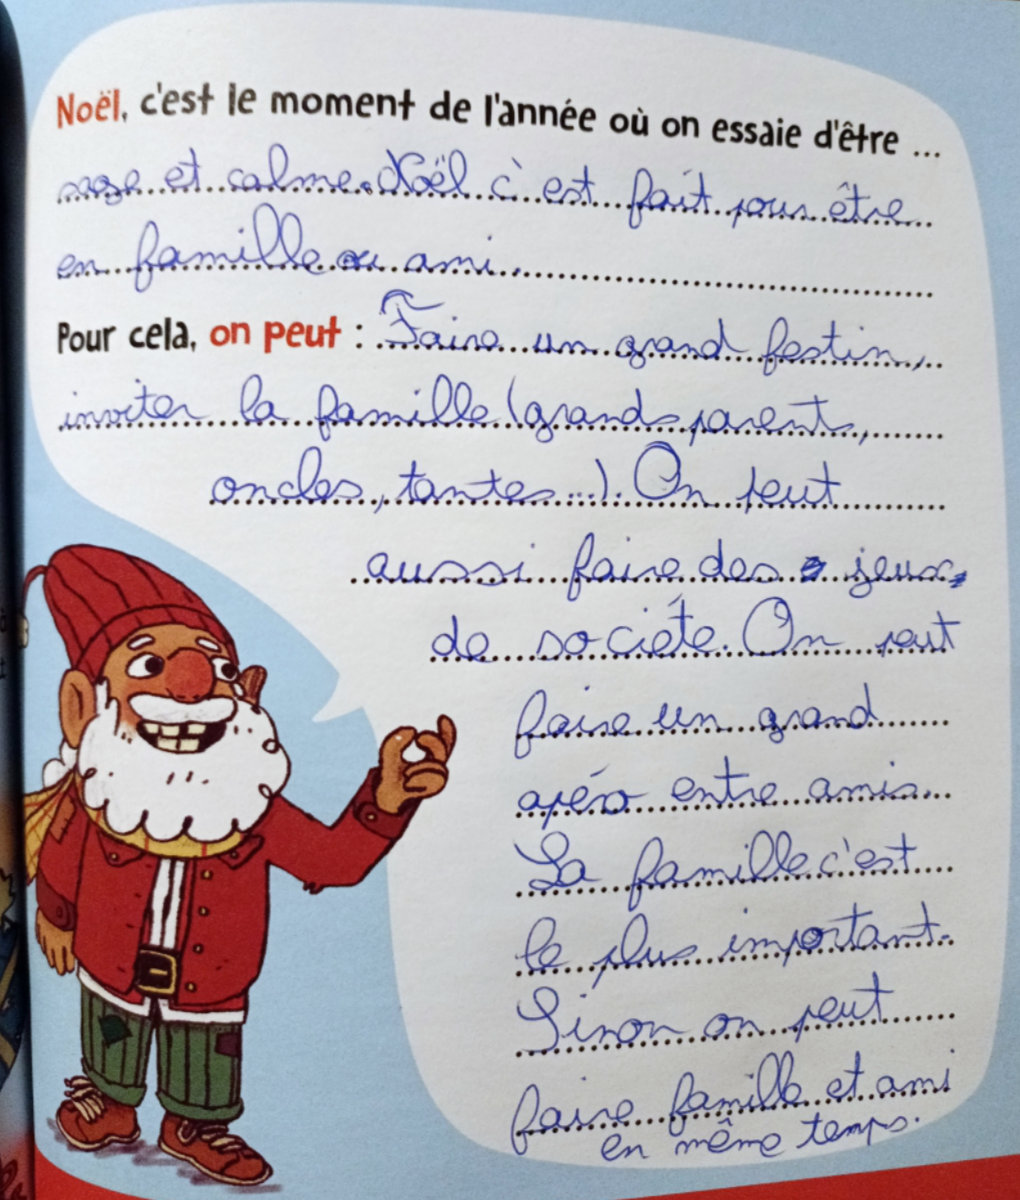 Noël, c'est le moment de l'année où on essaie d'être ...
sage et calme. Noël c'est fait pour être
en famille ou ami.
Pour cela, on peut : Faire un grand festin,
inviter la famille (grands parents,
oncles, tantes...). On peut
aussi faire des jeux
de sociéte. On peut
faire un grand
apéro entre amis.
La famille c'est
le plus important.
Sinon on peut
faire famille et ami
en même temps.